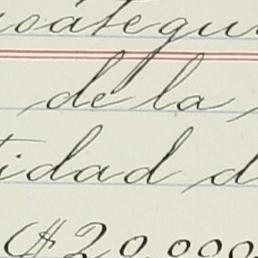 oategui
de la
tidad d
($20,000